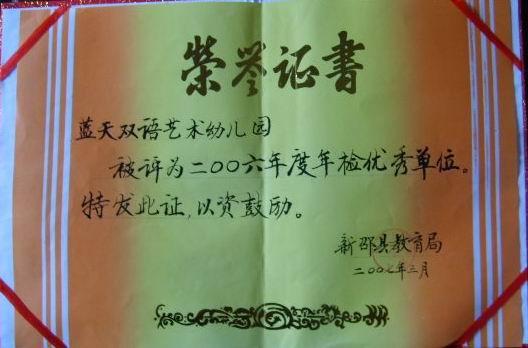 荣誉证书
蓝天双语艺术幼儿园
被评为二〇〇六年度年检优秀单位。
特发此证,以资鼓励。
新邵县教育局
二〇〇七年三月